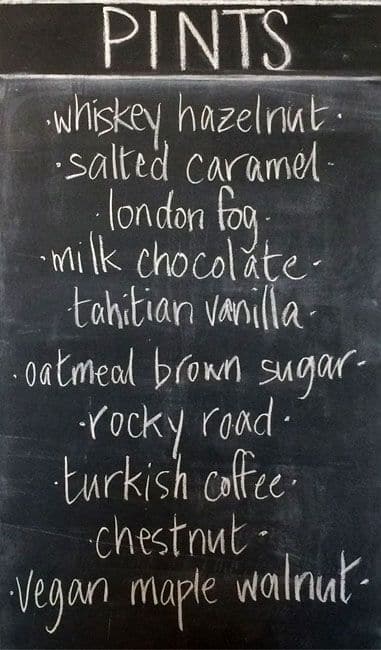 PINTS
·whiskey hazelnut·
·salted caramel·
·london fog·
·milk chocolate·
tahitian vanilla·
·oatmeal brown sugar·
·rocky road·
·turkish coffee·
·chestnut·
·vegan maple walnut·